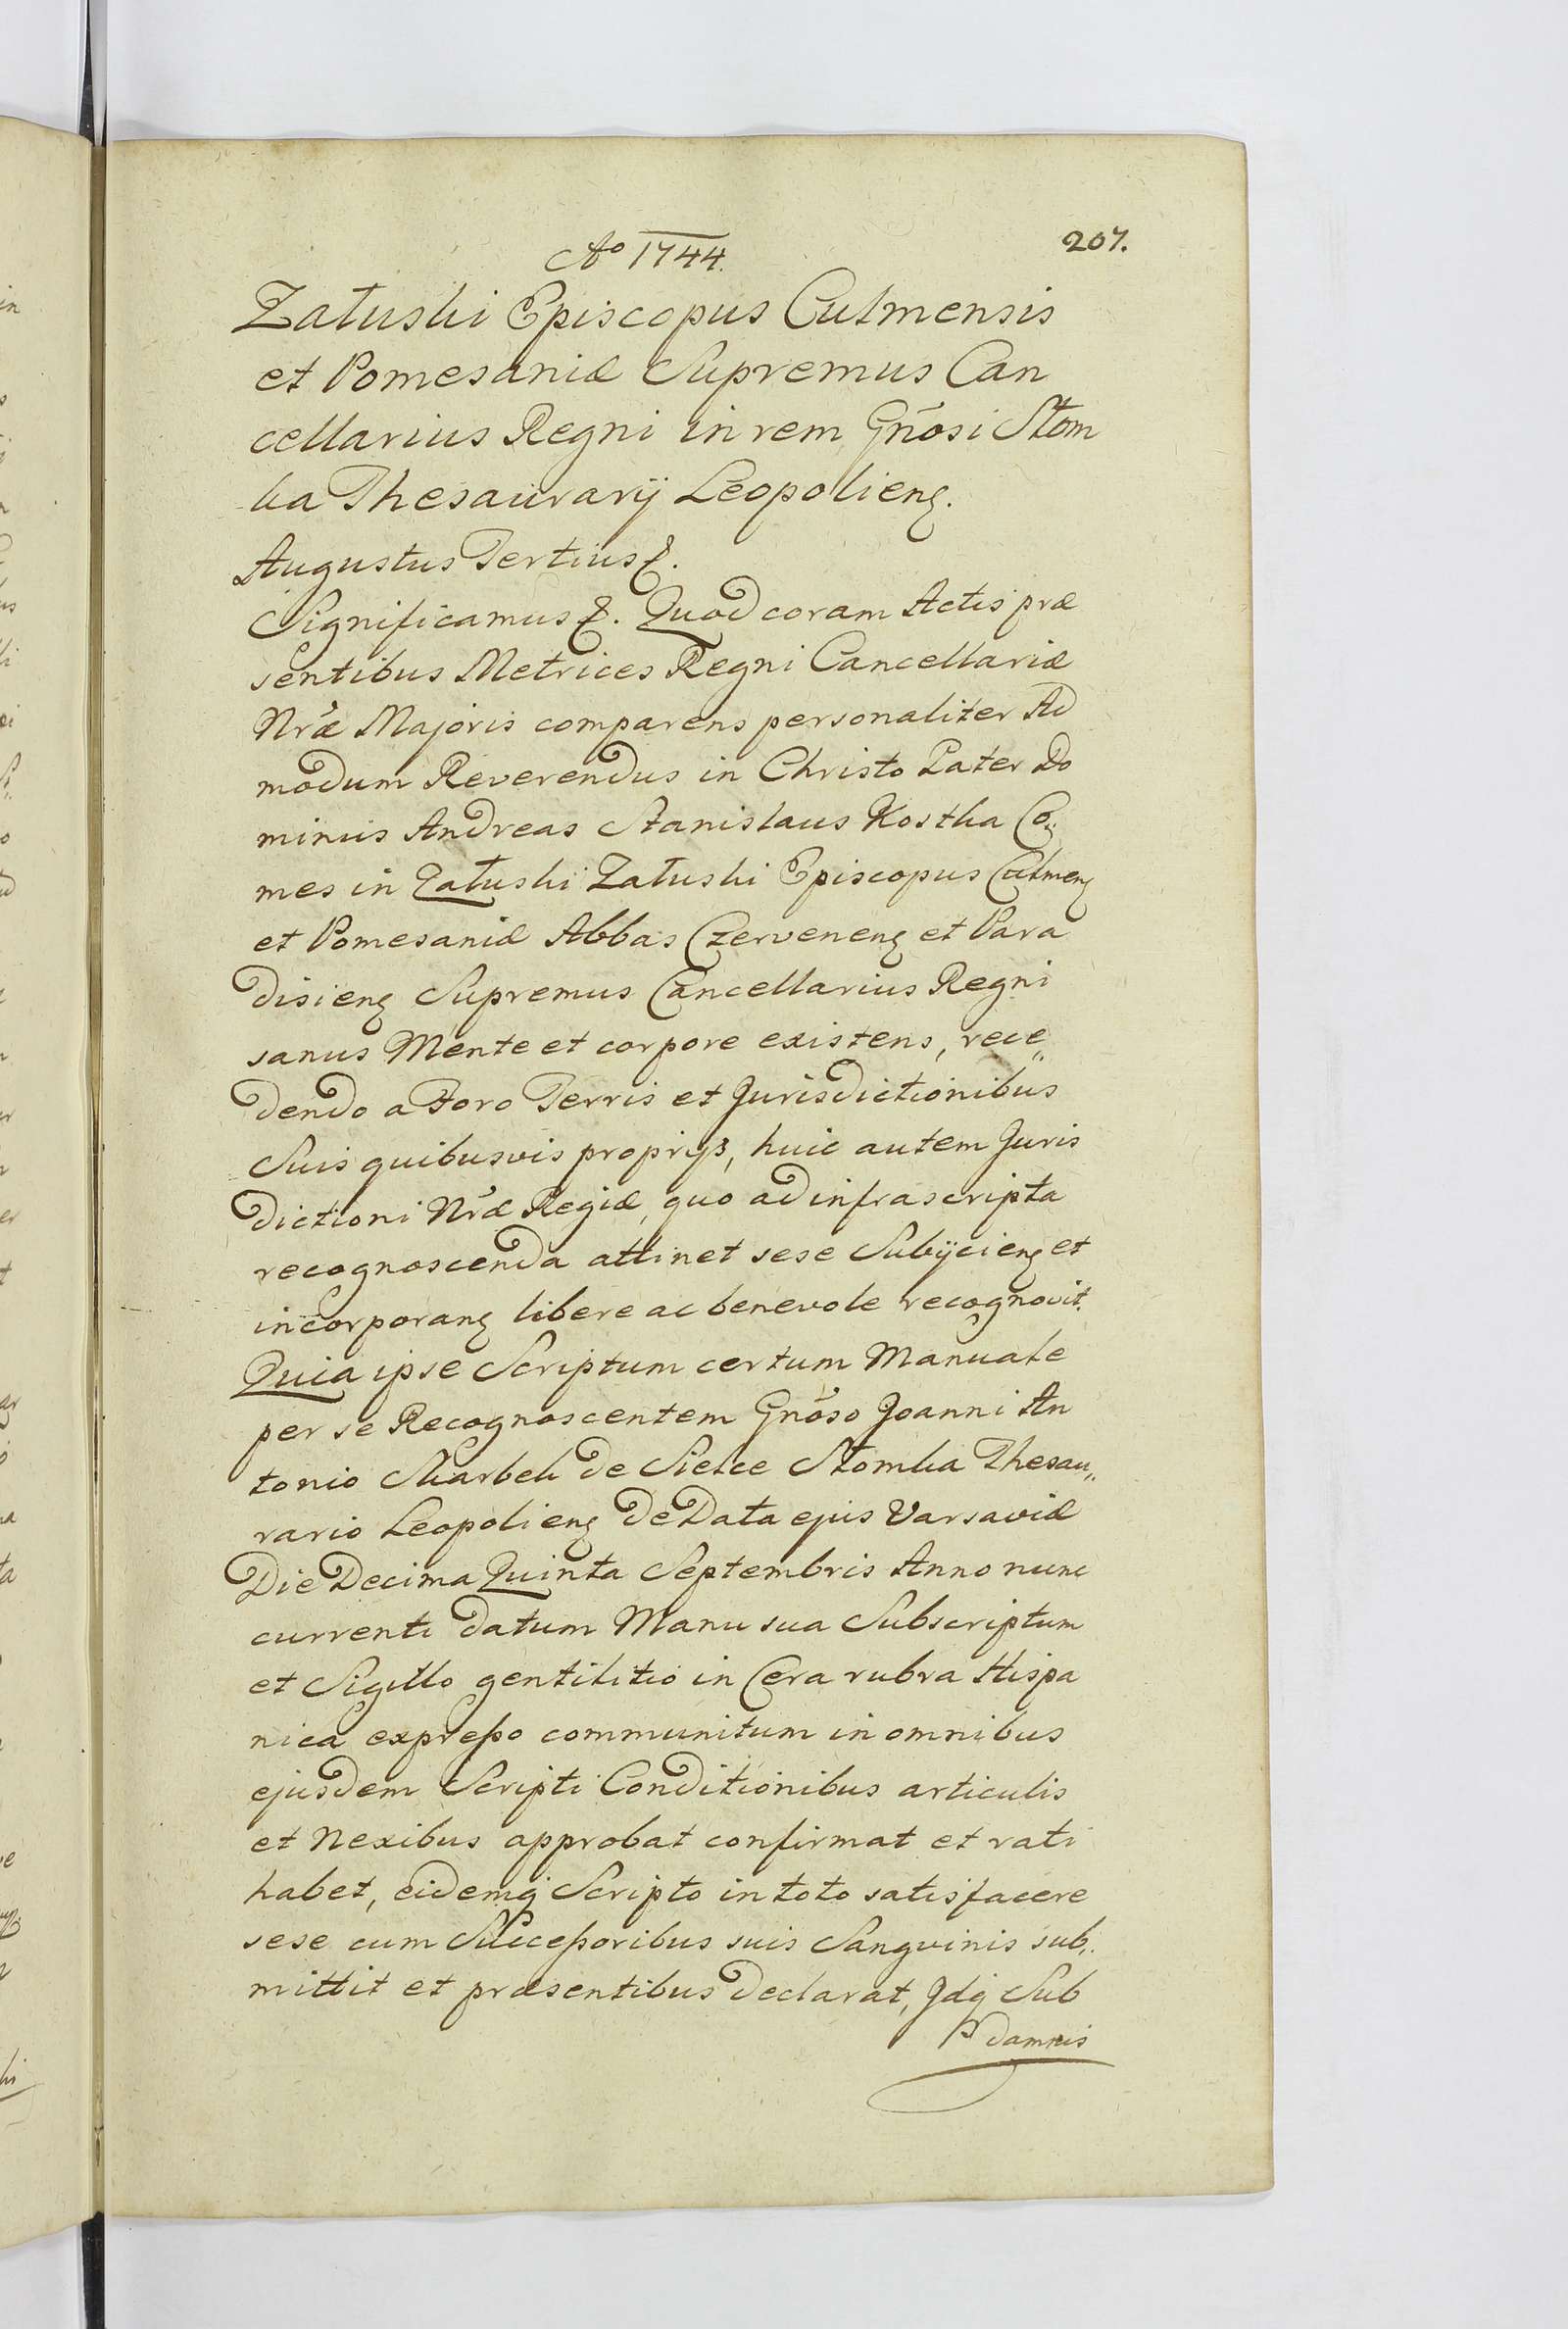 Aº 1744.
207.
Załuski Episcopus Culmensis
et Pomesaniæ Supremus Can
cellarius Regni in rem Gnõsi Stom
ka Thesaurarij Leopolieng.
Augustus Tertius &.
Significamus &. Quod coram Actis præ
sentibus Metrices Regni Cancellariæ
Nræ Majoris comparens personaliter Ad
modum Reverendus in Christo Pater Do
minus Andreas Stanislaus Kostka Co„
mes in Załuski Załuski Episcopus Culmeng
et Pomesaniæ Abbas Czerveneng et Para
disieng Supremus Cancellarius Regni
sanus Mente et corpore existens, rece„
dendo a Foro Terris et Jurisdictionibus
Suis quibusvis proprijs, huic autem Juris
dictioni Nræ Regiæ, quo ad infrascripta
recognoscenda attinet sese Subijcieng et
incorporang libere ac benevole recognovit.
Quia ipse Scriptum certum Manuale
per se Recognoscentem Gnõso Joanni An
tonio Skarbek de Sielce Stomka Thesau„
rario Leopolieng de Data ejus Varsaviæ
Die Decima Quinta Septembris Anno nunc
currenti datum Manu sua Subscriptum
et Sigillo gentilitio in Cera rubra Hispa
nica expreßo communitum in omnibus
ejusdem Scripti Conditionibus articulis
et Nexibus approbat confirmat et rati
habet, eidemq Scripto in toto satisfacere
sese cum Succeßoribus suis Sangvinis sub„
mittit et præsentibus declarat, Idq Sub
damnis